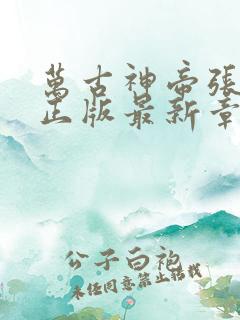 萬古神帝張
正版最新章
公子白袍
未经同意禁止搭载